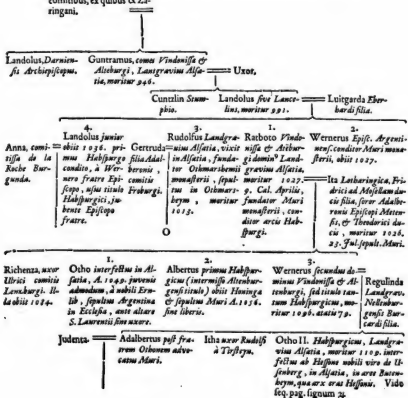 comitibus, ex quibus & Za-
ringani.
Landolus, Darnien-
sis Archiepiscopus.
Guntramus, comes Vindonissæ &
Alteburgi, Lantgravius Alsa-
tiæ, moritur 946.
Uxor,
Cuntzlin Stum-
phio.
Landolus sive Lance-
linus, moritur 991.
Luitgarda Eber-
hardi filia.
Anna, comi-
tissa de la
Roche Bur-
gunda.
4.
Landolus junior
obiit 1036. pri-
mus Habspurgo
condito, à Wer-
nero fratre Epi-
scopo, usus titulo
Habspurgici, ju-
bente Episcopo
fratre.
Gertruda
filia Adal-
beronis,
comitis
Froburgi.
3.
Rudolfus Landgra-
vius Alsatiæ, vixit
in Alsatia, funda-
tor Othmarshemii
monasterii, sepul-
tus in Othmars-
heym, moritur
1013.
O
1.
Ratboto Vindo-
nissæ & Altebur-
gi dominus Land-
gravius Alsatiæ,
moritur 1027.
9. Cal. Aprilis,
fundator Muri
monasterii, con-
ditor arcis Hab-
spurgi.
2.
Wernerus Episc. Argenti-
nens. conditor Muri mona-
sterii, obiit 1027.
Ita Lotharingica, Fri-
drici ad Mosellam du-
cis filia, soror Adalbe-
ronis Episcopi Meten-
sis, & Theodorici du-
cis, moritur 1026.
23. Jul. sepult. Muri.
Richenza, uxor
Ulrici comitis
Lentzburgi. Il-
la obiit 1084.
1.
Otho interfectus in Al-
satia, A. 1049. juvenis
admodum, à nobili Ern-
lib, sepultus Argentinæ
in Ecclesia, ante altare
S. Laurentii sine uxore.
2.
Albertus primus Habspur-
gicus (intermisso Altenbur-
gensi titulo) obiit Huningæ
& sepultus Muri A. 1056.
sine liberis.
3.
Wernerus secundus do-
minus Vindonissæ & Al-
tenburgi, sed titulo tan-
tum Habspurgicus, mo-
ritur 1096. ætatis 79.
Regulinda
Landgrav.
Nellenbur-
gensis Bur-
cardi filia.
Judenta.
Adalbertus post fra-
trem Othonem advo-
catus Muri.
Itha uxor Rudolfi
à Tirsteyn.
Otho II. Habspurgicus, Landgra-
vius Alsatiæ, moritur 1109. inter-
fectus ab Hessone nobili viro de U-
senberg, in Alsatia, in arce Buten-
heym, quæ arx erat Hessonis. Vide
seq. pag. signum ♃.